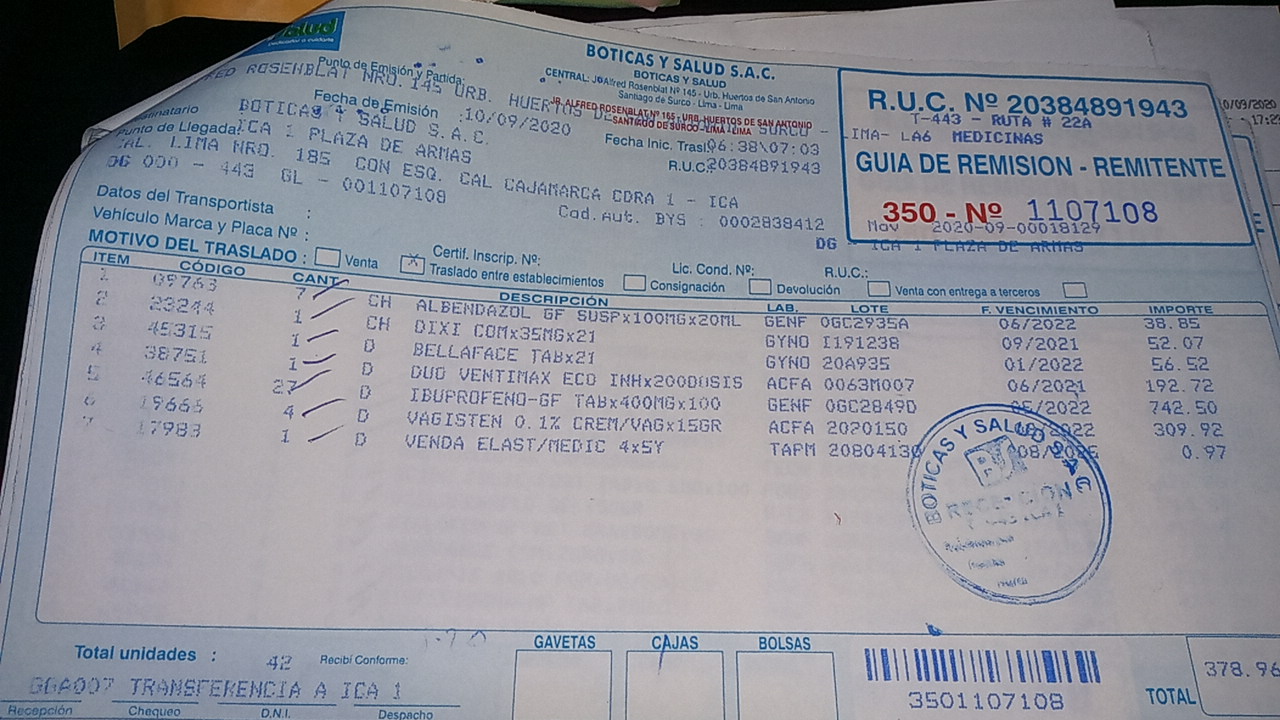 BOTICAS Y SALUD S.A.C.
BOTICAS Y SALUD
CENTRAL: Jr. Alfred Rosenblat Nº 145 - Urb. Huertos de San Antonio
Santiago de Surco - Lima - Lima
JR. ALFRED ROSENBLAT Nº 165 - URB. HUERTOS DE SAN ANTONIO
SANTIAGO DE SURCO - LIMA - LIMA
R.U.C. Nº 20384891943
T-443 - RUTA # 22A
LIMA- LA6 MEDICINAS
GUIA DE REMISION - REMITENTE
350 - Nº 1107108
Mov 2020-09-00018129
DG - ICA 1 PLAZA DE ARMAS
Punto de Emisión y Partida:
FRED ROSENBLAT NRO. 145 URB. HUERTOS DE SURCO -
Fecha de Emisión :10/09/2020
Fecha Inic. Trasl. 06:38\07:03
Destinatario BOTICAS Y SALUD S.A.C.
R.U.C. 20384891943
Punto de Llegada: ICA 1 PLAZA DE ARMAS
CAL. LIMA NRO. 185 CON ESQ. CAL CAJAMARCA CDRA 1 - ICA
DG 000 - 443 GL - 001107108
Cod.Aut. BYS : 0002838412
Datos del Transportista :
Vehículo Marca y Placa Nº :
Certif. Inscrip. Nº:
Lic. Cond. Nº:
R.U.C.:
MOTIVO DEL TRASLADO : Venta X Traslado entre establecimientos Consignación Devolución Venta con entrega a terceros
ITEM CÓDIGO CANT. DESCRIPCIÓN LAB. LOTE F. VENCIMIENTO IMPORTE
1 09763 7 CH ALBENDAZOL GF SUSPx100MGx20ML GENF 0GC2935A 06/2022 38.85
2 23244 1 CH DIXI COMx35MGx21 GYNO I191238 09/2021 52.07
3 45315 1 D BELLAFACE TABx21 GYNO 20A935 01/2022 56.52
4 38751 1 D DUO VENTIMAX ECO INHx200DOSIS ACFA 0063M007 06/2021 192.72
5 46564 27 D IBUPROFENO-GF TABx400MGx100 GENF 0GC2849D 05/2022 742.50
6 19665 4 D VAGISTEN 0.1% CREM/VAGx15GR ACFA 2020150 /2022 309.92
7 17983 1 D VENDA ELAST/MEDIC 4x5Y TAPM 2080413 08/ 0.97
BOTICAS Y SALUD S.A.C
RECEPCION
Total unidades : 42
Recibí Conforme:
GGA007 TRANSFERENCIA A ICA 1
Recepción Chequeo D.N.I. Despacho
GAVETAS CAJAS BOLSAS
3501107108
TOTAL 378.96